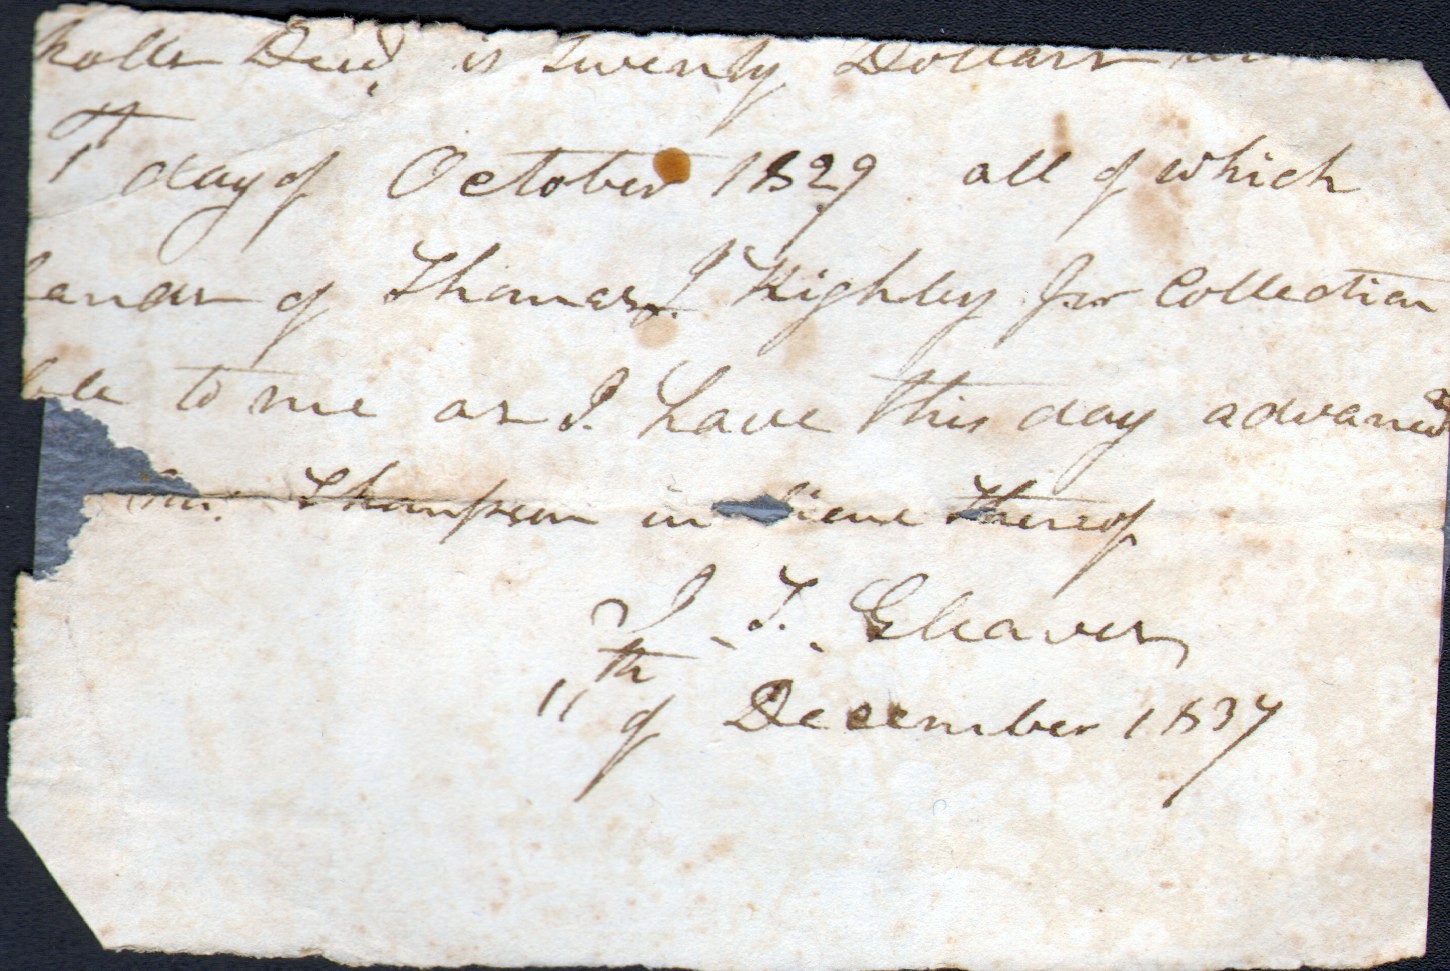 Decd, is Twenty Dollars
1st day of October 1829 all of which
hands of Thomas J Highley for Collection
ble to me as I have this day advancd
Thompson in Liew Thereof
J. T. Cleaver
11th of December 1837